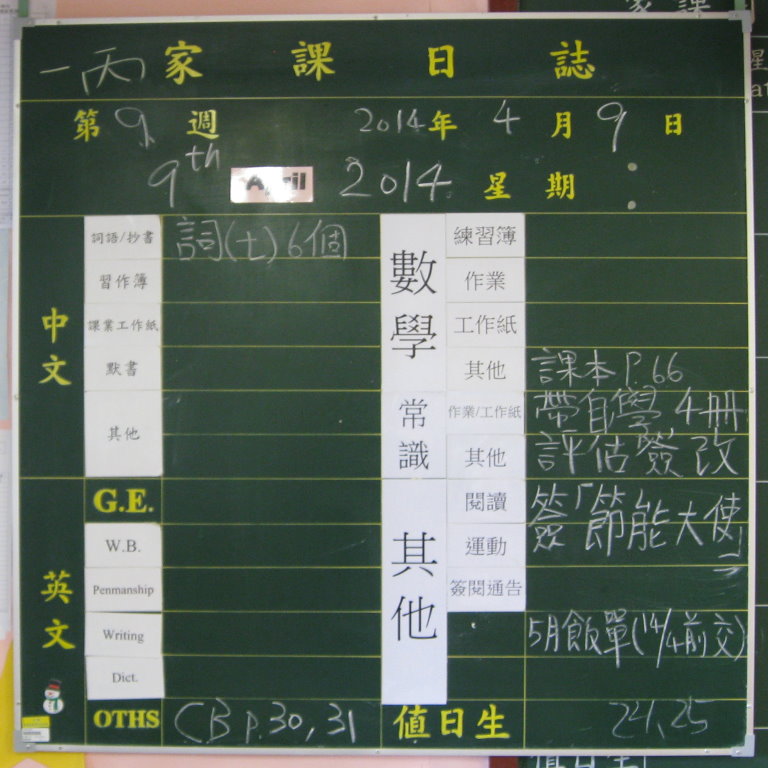 一丙 家課日誌
第9週 2014年4月9日
9th April 2014 星期:
中文
詞語/抄書 詞(七)6個
習作簿
課業工作紙
默書
其他
英文
G.E.
W.B.
Penmanship
Writing
Dict.
OTHS CB p.30,31
數學
練習簿
作業
工作紙
其他 課本P.66
常識
作業/工作紙 帶自學,4冊
其他 評估簽改
其他
閱讀 簽「節能大使」
運動
簽閱通告
5月飯單(14/4前交)
值日生 24,25
家課